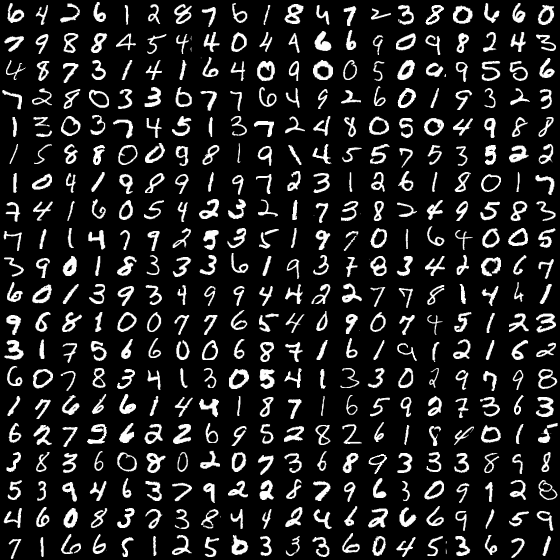 6 4 2 6 1 2 8 7 6 1 8 4 7 2 3 8 0 6 6 0
7 9 8 8 4 5 4 4 0 4 1 6 6 9 0 9 8 2 4 3
4 8 7 3 1 4 1 6 4 0 9 0 0 5 0 0 9 5 5 6
7 2 8 0 3 3 6 7 7 6 4 9 2 6 0 1 9 3 2 3
1 3 0 3 7 4 5 1 3 7 2 4 8 0 5 0 4 9 8 8
1 5 8 8 0 0 9 8 1 9 1 4 5 5 7 5 3 5 2 2
1 0 4 1 9 8 9 1 9 7 2 3 1 2 6 1 8 0 1 7
7 4 1 6 0 5 4 2 3 2 1 7 3 8 2 4 9 5 8 3
7 1 1 4 7 9 2 5 3 5 1 9 7 0 1 6 4 0 0 5
3 9 0 1 8 3 3 3 6 1 9 3 7 8 3 4 2 0 6 7
6 0 1 3 9 3 4 9 9 4 4 2 2 7 7 8 1 4 4 1
9 6 8 1 0 0 7 7 6 5 4 0 9 0 7 4 5 1 2 3
3 1 7 5 6 6 0 0 6 8 7 1 6 1 9 1 2 1 6 2
6 0 7 8 3 4 1 3 0 5 4 1 3 3 0 2 9 7 9 8
1 7 6 6 6 1 4 4 1 8 7 1 6 5 9 2 7 3 6 3
6 2 7 5 6 2 2 6 9 5 2 8 2 6 1 8 4 0 1 5
3 8 3 6 0 8 0 2 0 7 3 6 8 9 3 3 3 8 9 8
5 3 9 4 6 3 7 9 2 2 8 7 9 6 3 0 9 1 2 8
4 6 0 8 3 2 3 8 4 4 2 4 6 2 6 6 9 1 5 9
7 1 6 6 5 1 2 5 0 3 3 3 6 0 4 5 3 6 7 1